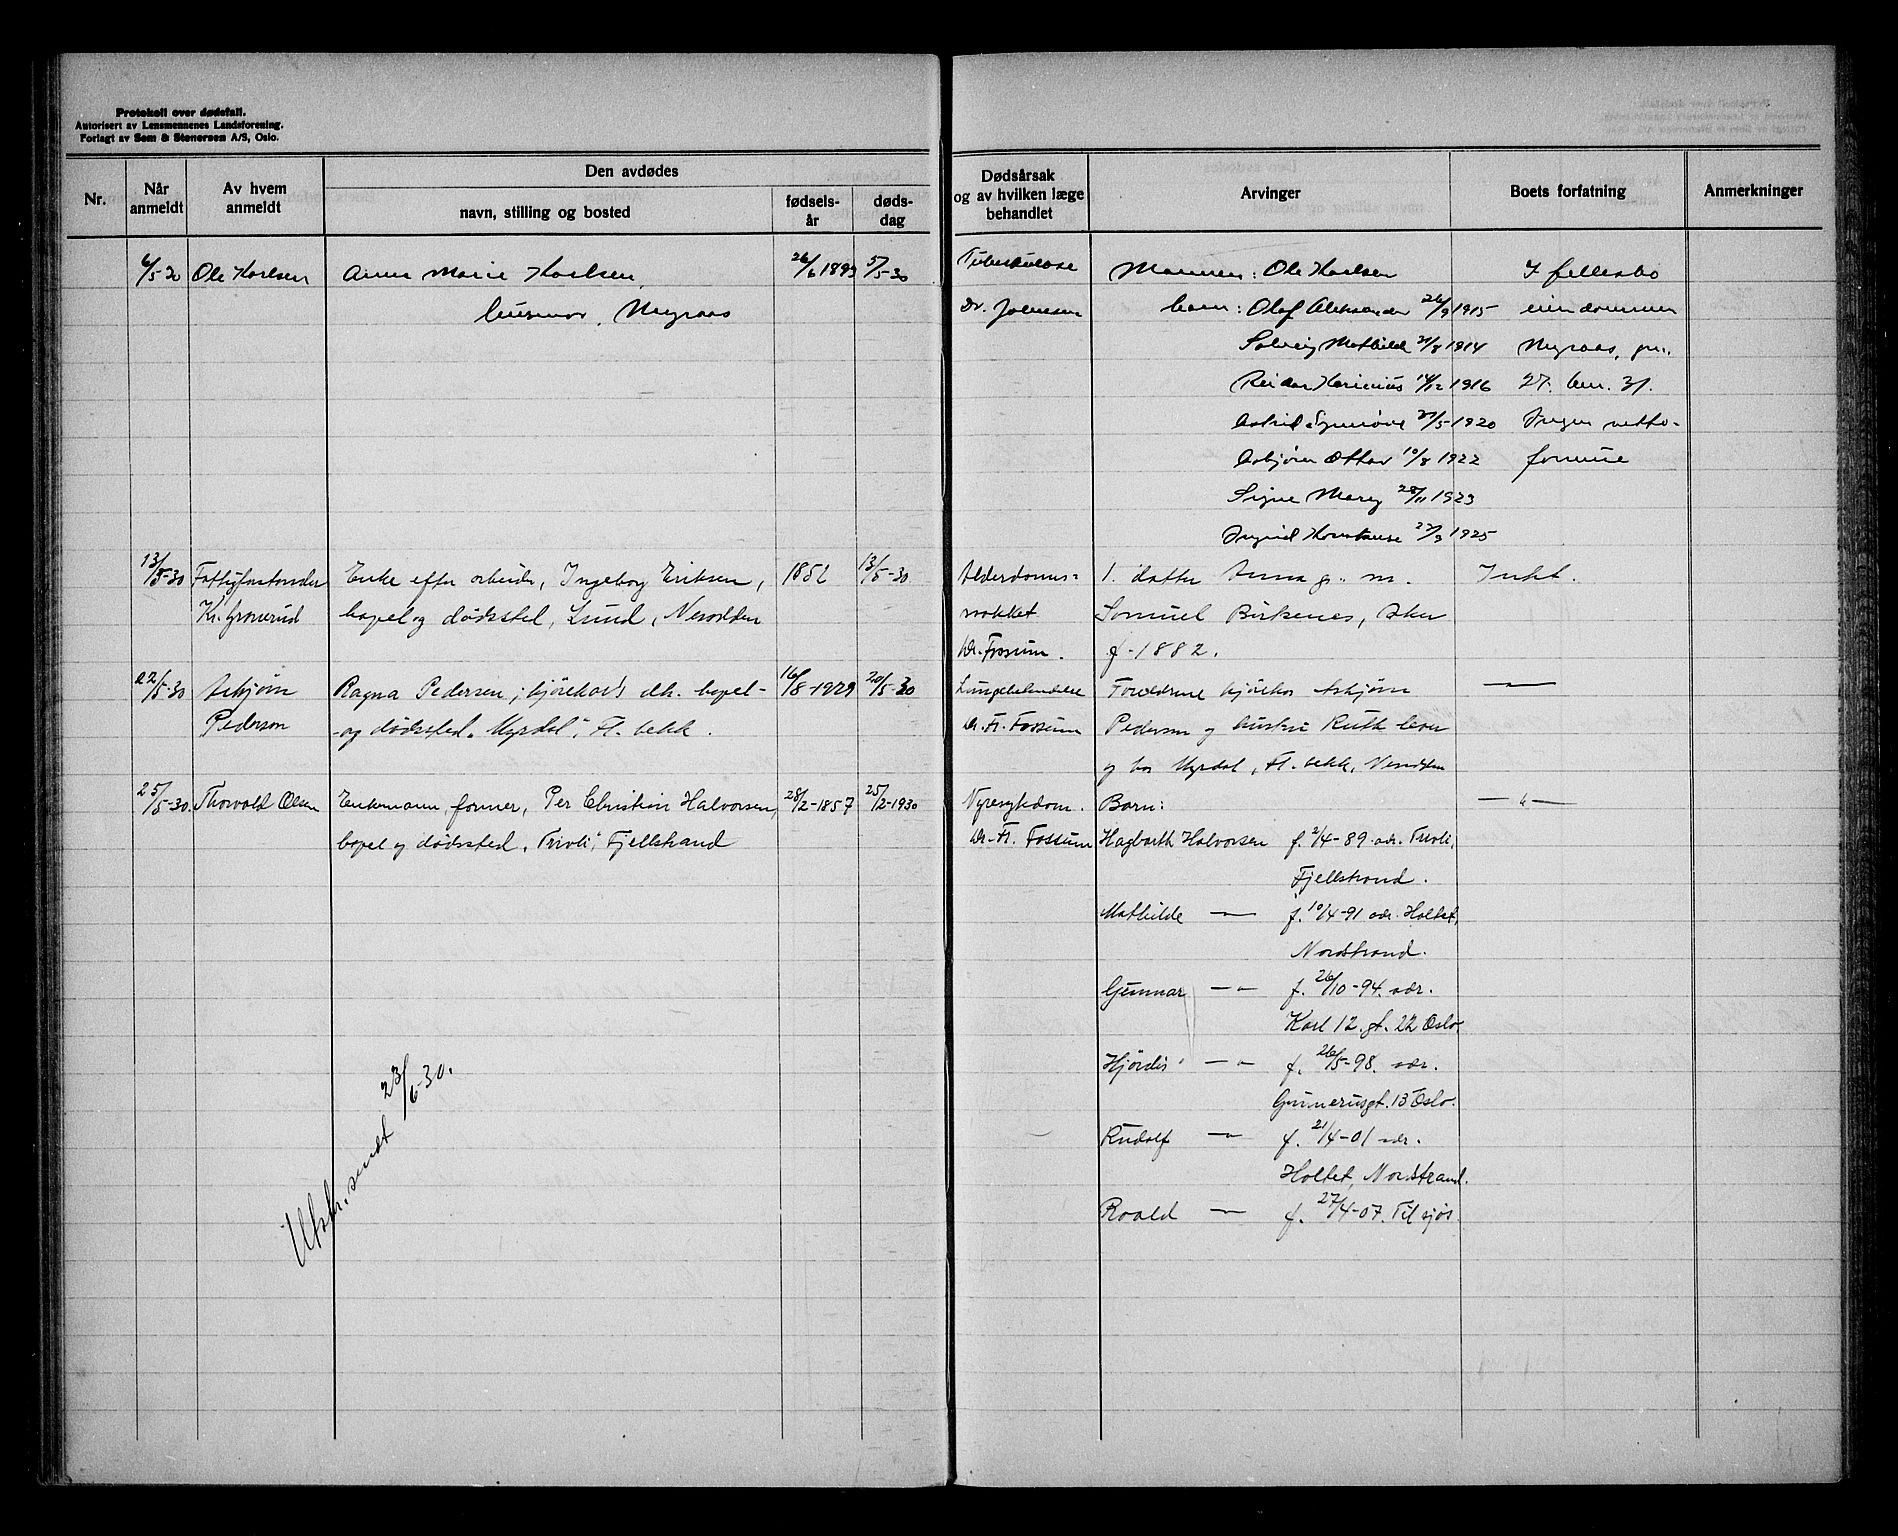 Protokoll over dødsfall.
Autorisert av Lensmennenes Landsforening.
Forlagt av Sem & Stenersen A/S, Oslo.
Nr.
Når anmeldt
Av hvem anmeldt
Den avdødes
navn, stilling og bosted
fødselsår
dødsdag
Dødsårsak og av hvilken læge behandlet
Arvinger
Boets forfatning
Anmerkninger
6/5-30 Ole Karlsen Anna Marie Karlsen, 26/6 1893 5/5-30 Tuberkulose Mannen: Ole Karlsen I fellesbo
husmor, Myraas Dr. Johnsen barn: Olaf Aleksander 26/9 1915 eiendommen
Solveig Mathilde 21/8 1914 Myraas, gn.
Reidar 14/12 1916 27. bnr. 31.
Astrid Synnöve 21/5-1920 Ingen netto-
Asbjörn Ottar 10/8 1922 formue
Signe Mary 28/11 1923
Ingrid 22/3 1925
13/5-30 Fattigforstander Enke efter arbeider, Ingeborg Eriksen, 13/5-30 Alderdoms= 1. datter Anna g. m. Intet.
Kr. Granerud bopel og dödssted, Lund, Nesodden svakket Samuel Birkenes, Aker
Dr. Fossum. f-1882.
22/5-30 Asbjörn Ragna Pedersen, kjörekar's dtr. bopel- 16/8-1929 20/5-30 Lungebetendelse Foreldrene kjörekar Asbjörn —
Pederson og dödssted. Myrdal, Fl. bekk. Dr. Fr. Fossum Pedersen og hustru Ruth lever
og bor Myrdal, Fl. bekk, Nesodden
25/5-30. Thorvald Olsen Enkemann, former, Per Christian Halvorsen, 28/2-1857 25/2-1930 Nyresykdom. Barn: — " —
bopel og dödssted, Tivoli, Fjellstrand Dr. Fr. Fossum Hagbarth Halvorsen f. 2/4-89 adr. Tivoli,
Fjellstrand.
Mathilde — " — f. 10/4-91 adr. Holtet,
Nordstrand.
Gunnar — " — f. 26/10-94. adr.
Karl 12. gt. 22 Oslo.
Hjördis — " — f. 26/5-98. adr.
Gunnerusgt. 13 Oslo.
Rudolf — " — f. 21/4-01 adr.
Holtet, Nordstrand.
Roald — " — f. 27/4-07. Til sjös.
Utskr. sendt 23/6-30.